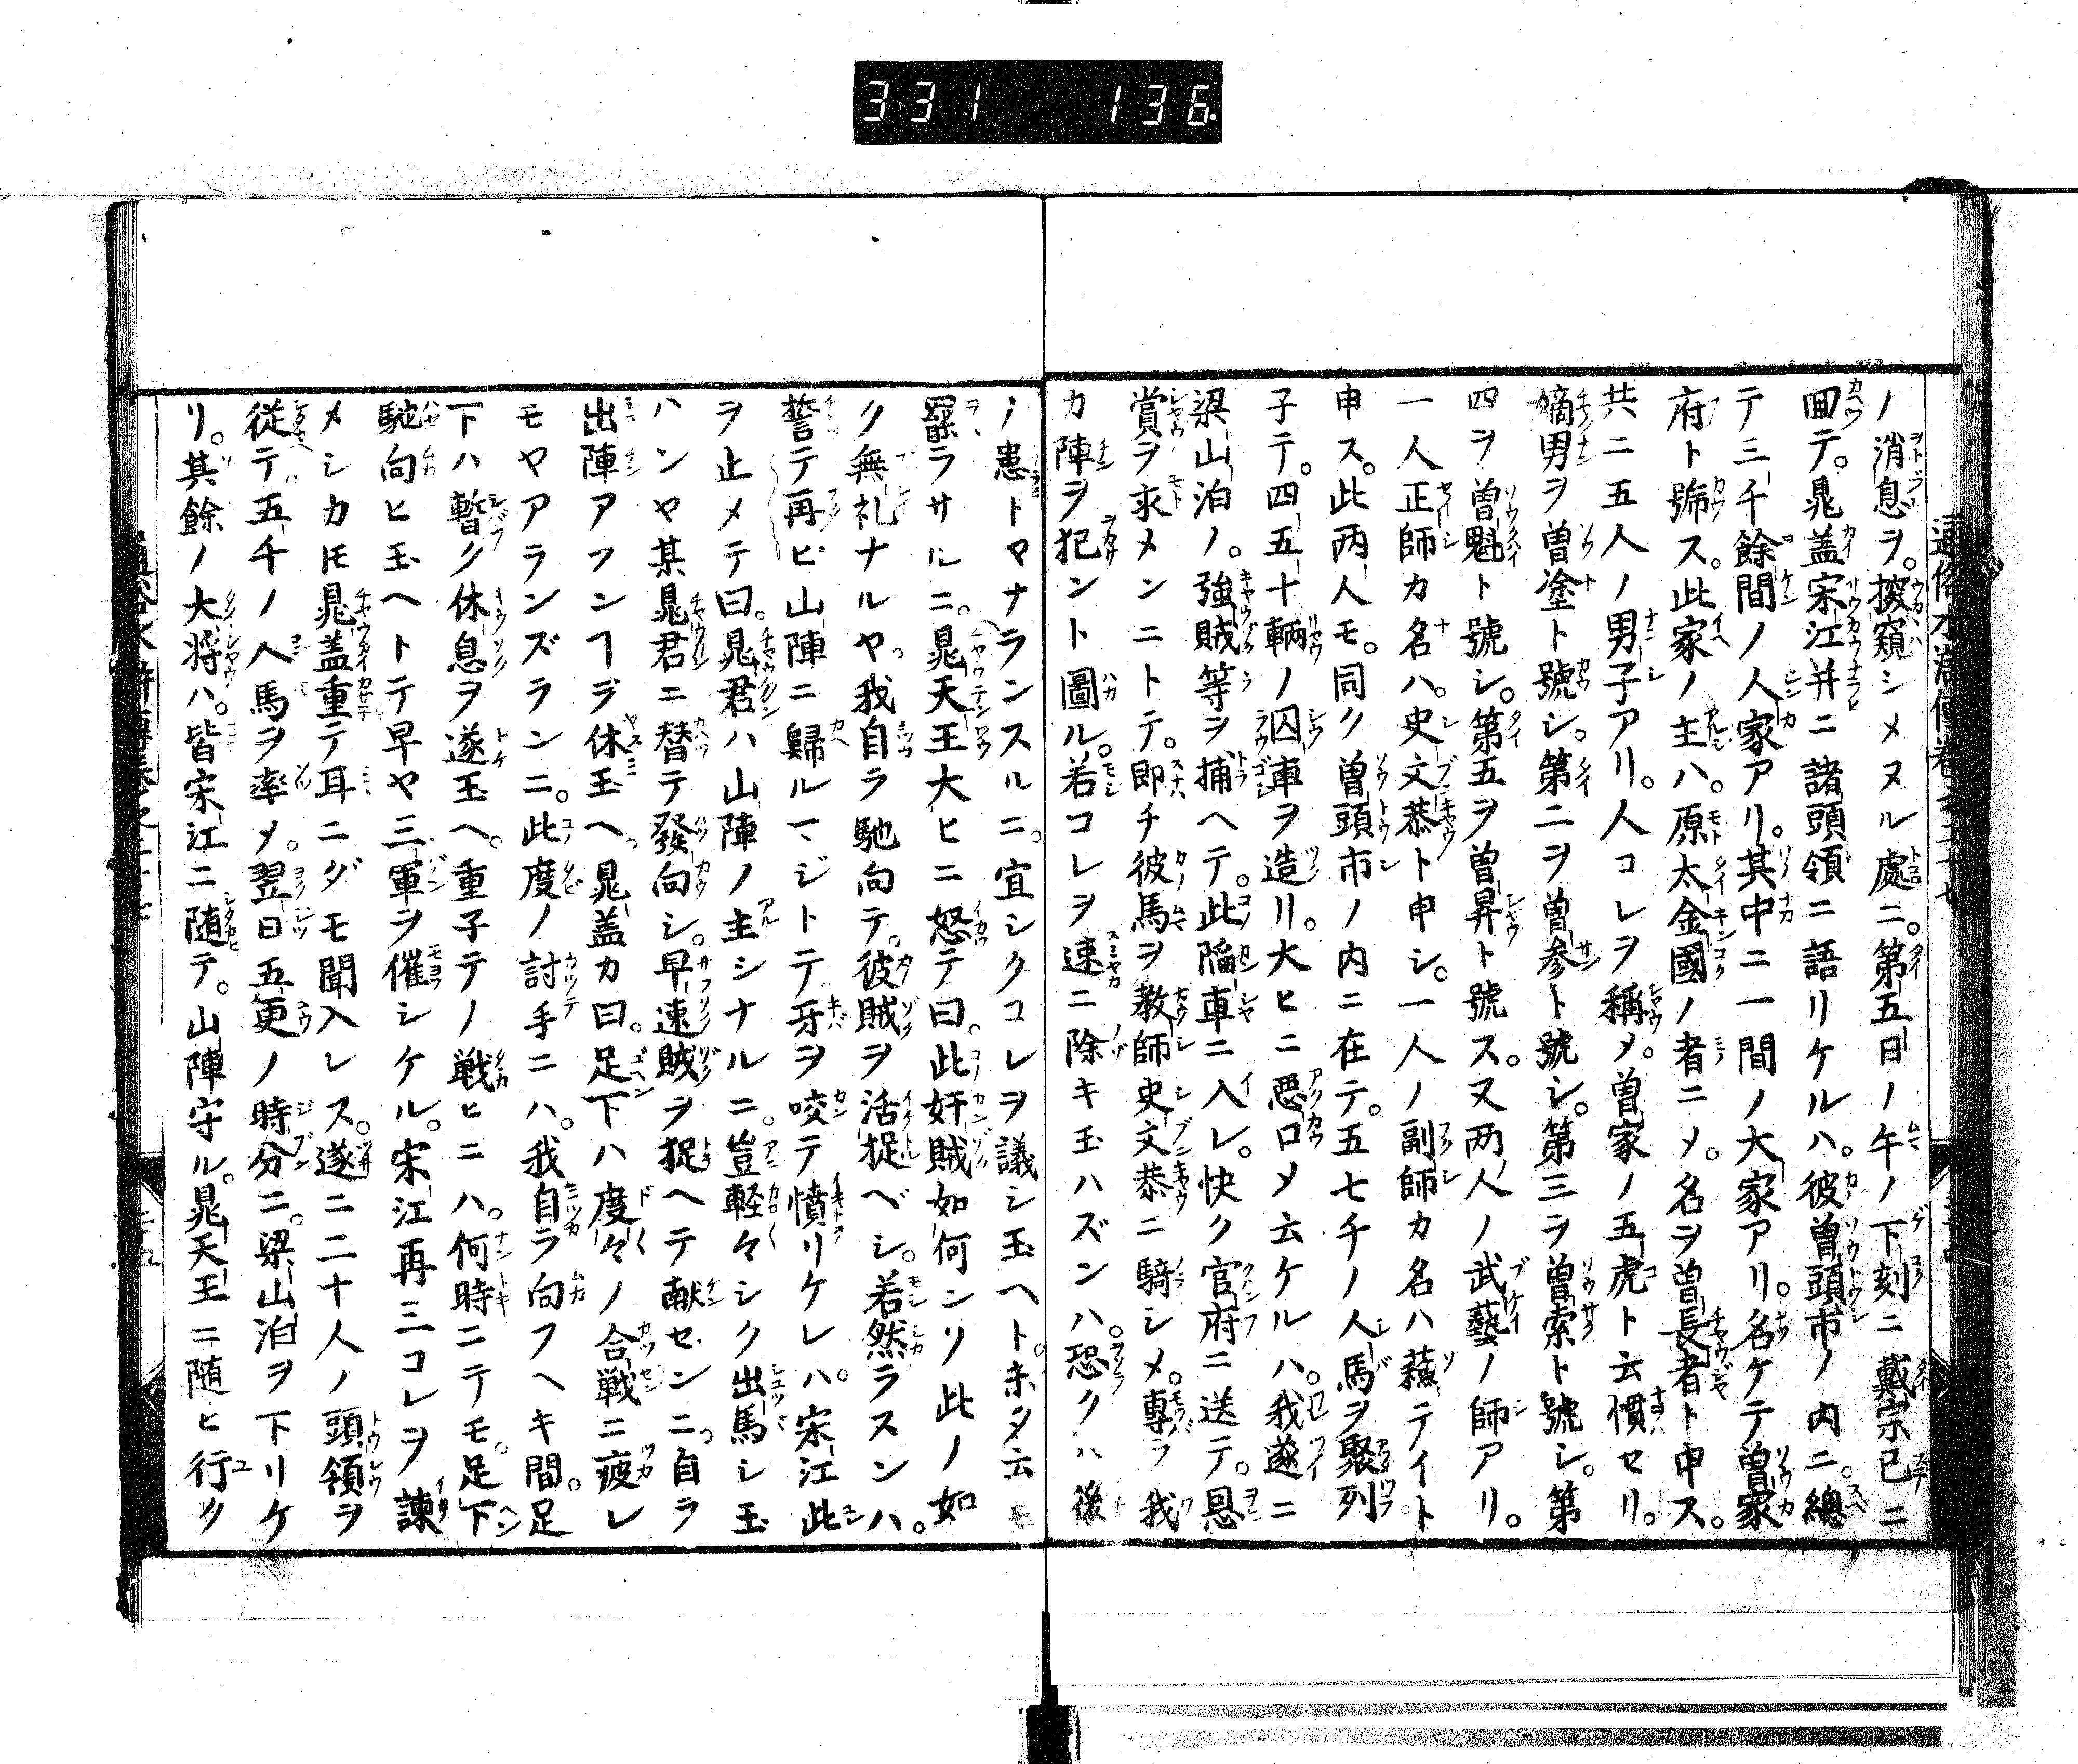 331 136
ノ消息ヲ。揆窺シメヌル處ニ。第五日ノ午ノ下刻ニ戴宗已ニ
囬テ。晁盖宋江并ニ諸頭領ニ語リケルハ。彼曽頭市ノ内ニ。總
テ三千餘間ノ人家アリ。其中ニ一間ノ大家アリ。名ケテ曽家
府ト號ス。此家ノ主ハ。原太金國ノ者ニメ。名ヲ曽長者ト申ス。
共ニ五人ノ男子アリ。人コレヲ稱メ。曽家ノ五虎ト云慣セリ。
嫡男ヲ曽塗ト號シ。第二ヲ曽参ト號シ。第三ヲ曽索ト號シ。第
四ヲ曽魁ト號シ。第五ヲ曽昇ト號ス。又两人ノ武藝ノ師アリ。
一人正師カ名ハ。史文恭ト申シ。一人ノ副師カ名ハ蘓テイト
申ス。此两人モ。同ク曽頭市ノ内ニ在テ。五七千ノ人馬ヲ聚列
子テ。四五十輌ノ囚車ヲ造リ。大ヒニ惡口メ云ケルハ。我遂ニ
梁山泊ノ。強賊等ヲ捕ヘテ。此陥車ニ入レ。快ク官府ニ送テ。恩
賞ヲ求メンニトテ。即チ彼馬ヲ教師史文恭ニ騎シメ。專ラ我
カ陣ヲ犯ント圖ル。若コレヲ速ニ除キ玉ハズンハ。恐クハ後
ノ患トマナランスルニ。宜シクコレヲ議シ玉ヘト。未タ云モ
罷ラサルニ。晁天王大ヒニ怒テ曰。此奸賊如何ンリ此ノ如
ク無礼ナルヤ。我自ラ馳向テ。彼賊ヲ活捉ベシ。若然ラスンハ。
誓テ再ビ山陣ニ歸ルマジトテ牙ヲ咬テ憤リケレハ。宋江此
ヲ止メテ曰。晁君ハ山陣ノ主シナルニ。豈軽々シク出馬シ玉
ハンヤ某晁君ニ替テ發向シ。早速賊ヲ捉ヘテ献センニ。自ラ
出陣アフンヿヲ休玉ヘ。晁盖カ曰。足下ハ度々ノ合戦ニ疲レ
モヤアランズランニ。此度ノ討手ニハ。我自ラ向フヘキ間。足
下ハ暫ク休息ヲ遂玉ヘ。重子テノ戦ヒニハ。何時ニテモ。足下
馳向ヒ玉ヘトテ早ヤ三軍ヲ催シケル。宋江再三コレヲ諫
メシカ𪜈晁盖重テ耳ニダモ聞入レス。遂ニ二十人ノ頭領ヲ
従テ。五千ノ人馬ヲ率メ。翌日五更ノ時分ニ。梁山泊ヲ下リケ
リ。其餘ノ大将ハ。皆宋江ニ随テ。山陣守ル。晁天王ニ随ヒ行ク